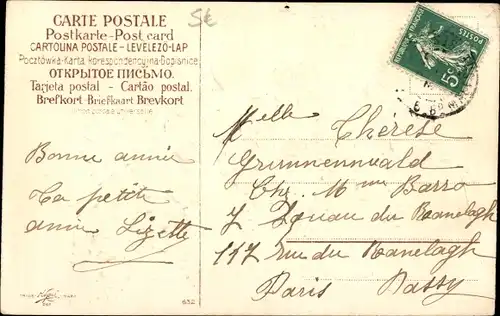 CARTE POSTALE
Postkarte - Post card
CARTOLINA POSTALE - LEVELEZŐ-LAP
Pocztówka-Karta korespondencyjna-Dopisnice
ОТКРЫТОЕ ПИСЬМО.
Tarjeta postal - Cartão postal.
Brefkort-Briefkaart Brevkort
Union postale universelle
5€
5c
POSTES
Bonne année
Ta petite
amie Lizette
Melle Thérèse
Grunnenwald
Chz. Mme Barro
7 Square du Ranelagh
117 rue du Ranelagh
Paris Passy
652